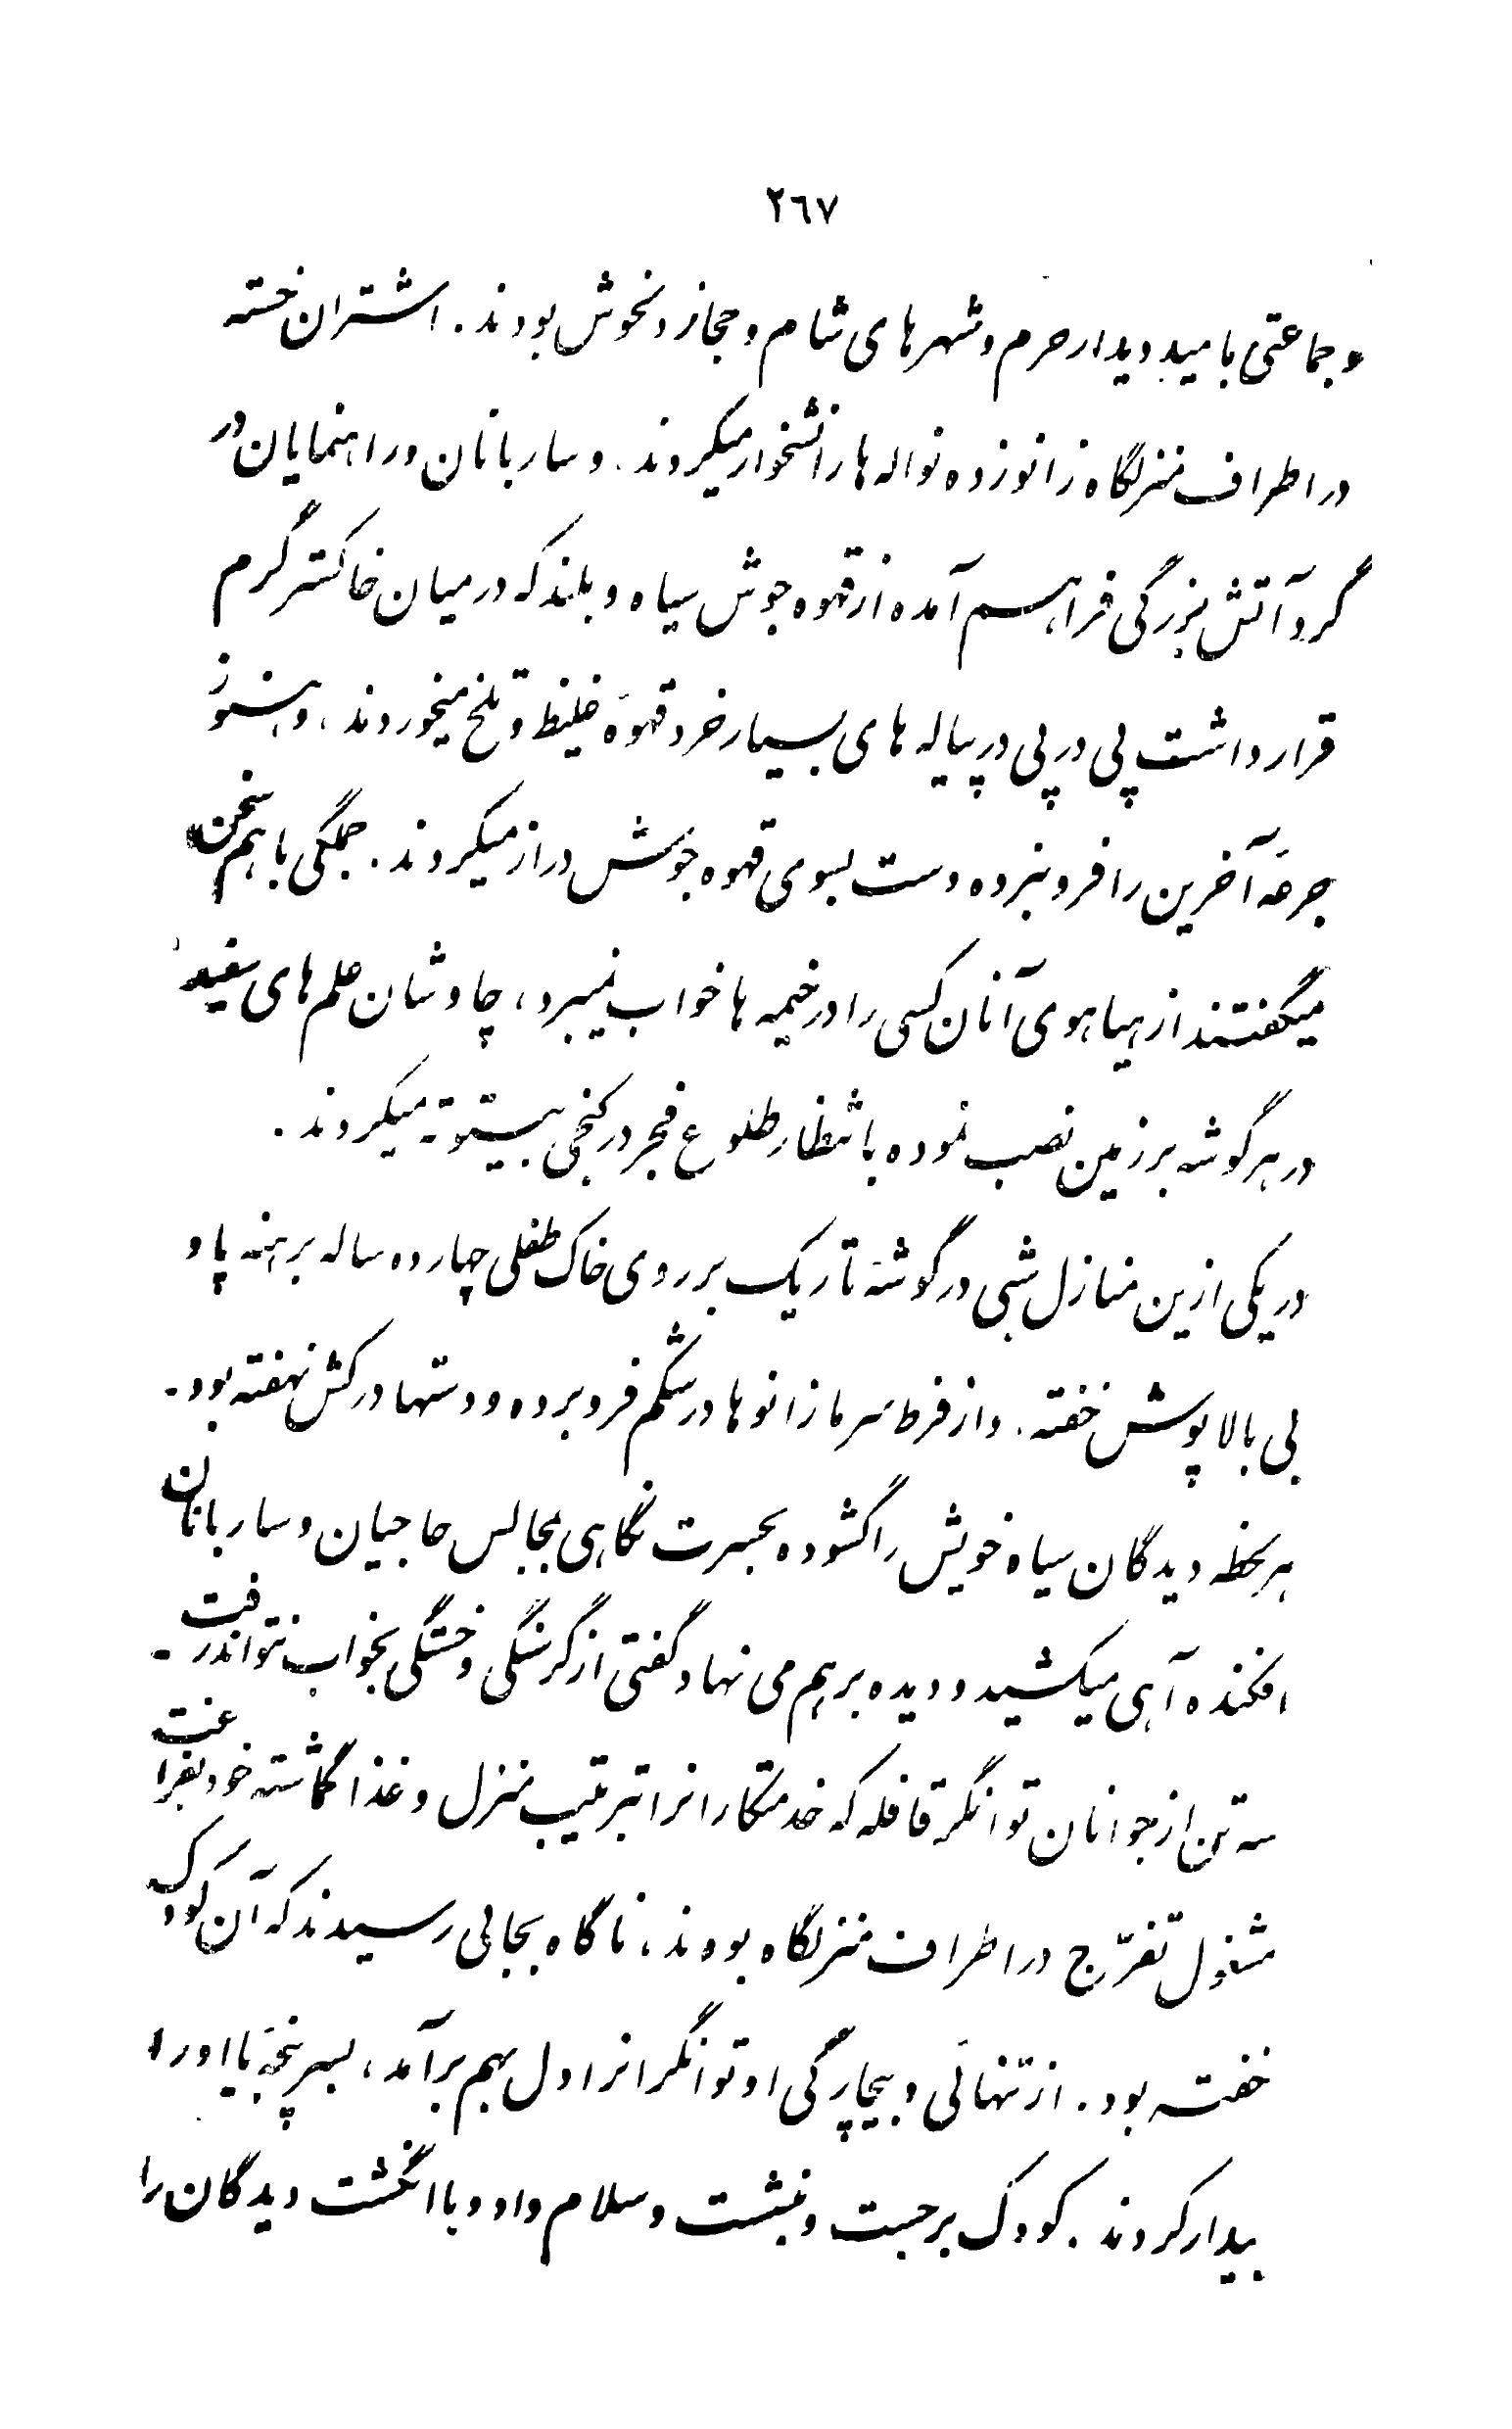 ٢٦٧
و جماعتی بامید دیدار حرم و شهرهای شام و حجاز دلخوش بودند. اشتران خسته
در اطراف منزلگاه زانو زده نواله ها را نشخوار میکردند. و ساربانان و راهنمایان در
گرد آتش بزرگی فراهم آمده از قهوه جوش سیاه و بلند که در میان خاکستر گرم
قرار داشت پی در پی در پیاله های بسیار خرد قهوهٔ غلیظ و تلخ میخوردند، و هنوز
جرعهٔ آخرین را فرو نبرده دست بسوی قهوه جوش دراز میکردند. جملگی با هم سخن
میگفتند از هیاهوی آنان کسی را در خیمه ها خواب نمیبرد، چاوشان علم های سفید
در هر گوشه بر زمین نصب نموده بانتظار طلوع فجر در کنجی بیتوته میکردند.
در یکی ازین منازل شبی در گوشهٔ تاریک بر روی خاک طفلی چهارده ساله برهنه پا و
بی بالاپوش خفته. و از فرط سرما زانوها در شکم فرو برده و دستها در کش نهفته بود.
هر لحظه دیدگان سیاه خویش را گشوده بحسرت نگاهی بمجالس حاجیان و ساربانان
افکنده آهی میکشید و دیده بر هم می نهاد گفتی از گرسنگی و خستگی بخواب نتواند رفت.
سه تن از جوانان توانگر قافله که خدمتکارانرا بترتیب منزل و غذا گماشته خود بفراغت
مشغول تفرّج در اطراف منزلگاه بودند، ناگاه بجائی رسیدند که آن کودک
خفته بود. از تنهائی و بیچارگی او توانگرانرا دل بهم برآمد، بسر پنجهٔ پا او را
بیدار کردند. کودک برجست و نشست و سلام داد و با انگشت دیدگان را